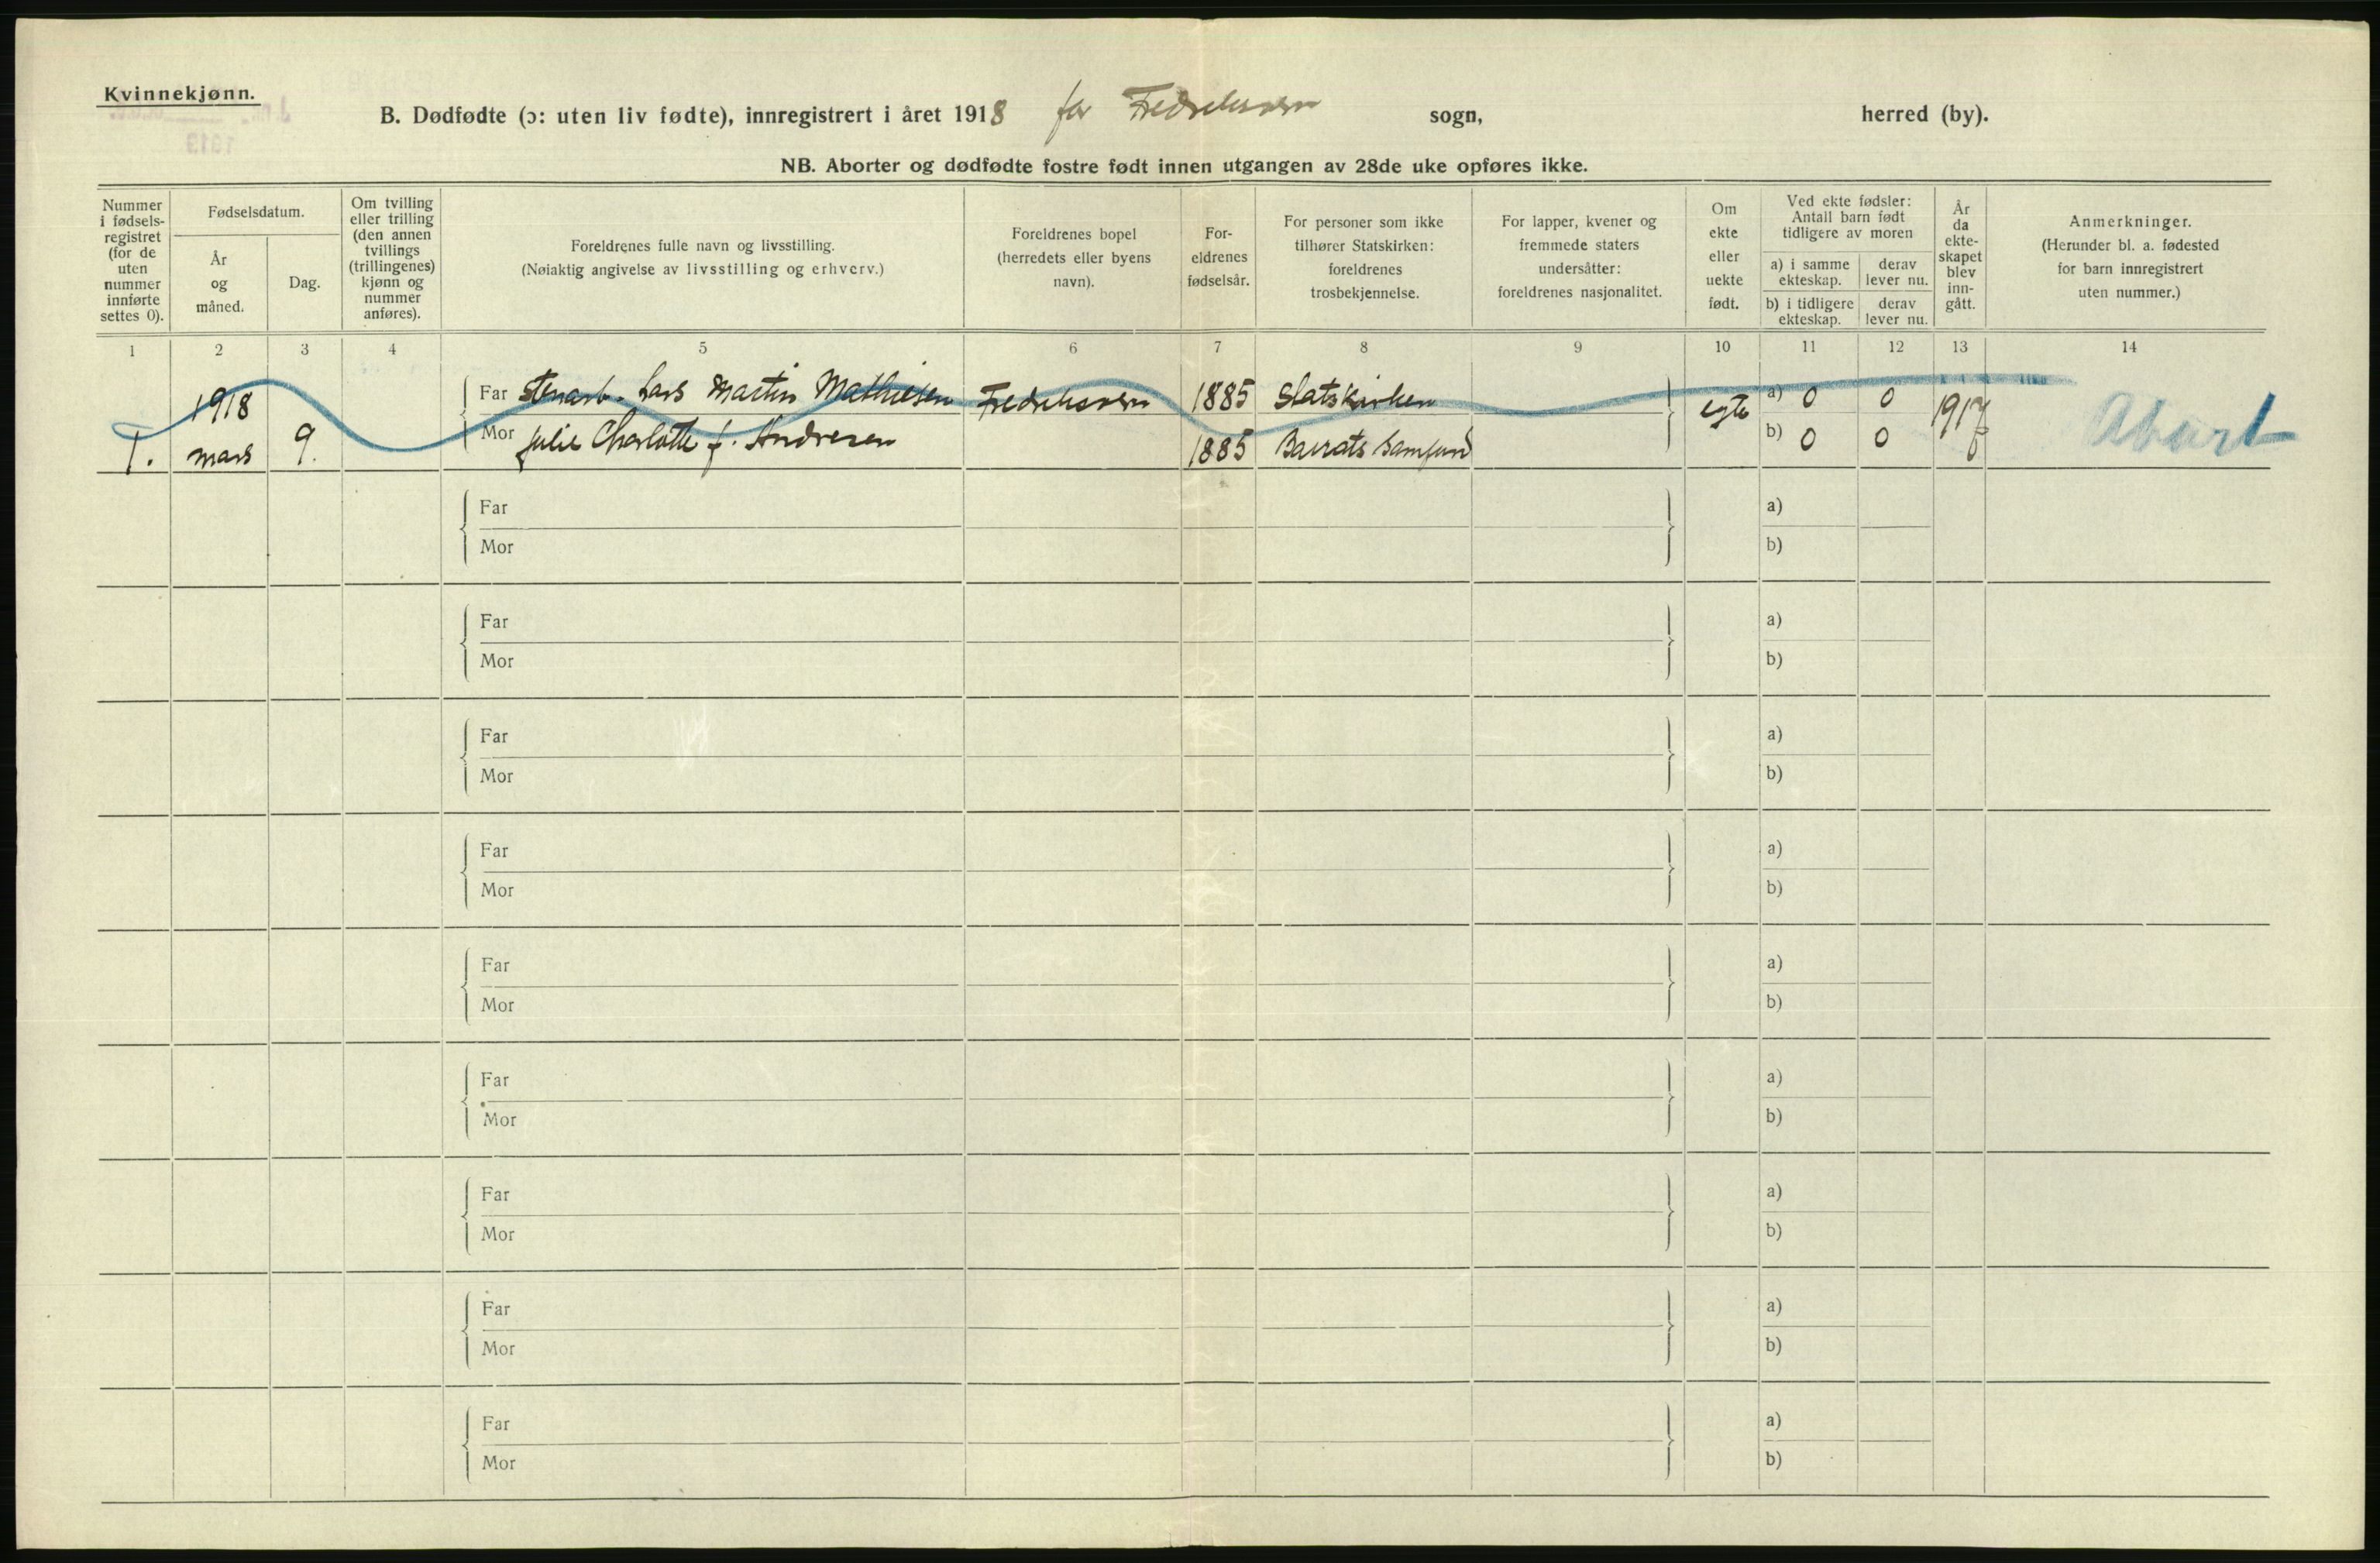 Kvinnekjønn.
B. Dødfødte (ɔ: uten liv fødte), innregistrert i året 1918 for Fredriksvern sogn, herred (by).
NB. Aborter og dødfødte fostre født innen utgangen av 28de uke opføres ikke.
Nummer i fødsels-registret (for de uten nummer innførte settes 0).
Fødselsdatum.
År og måned.
Dag.
Om tvilling eller trilling (den annen tvillings (trillingenes) kjønn og nummer anføres).
Foreldrenes fulle navn og livsstilling.
(Nøiaktig angivelse av livsstilling og erhverv.)
Foreldrenes bopel (herredets eller byens navn).
For-eldrenes fødselsår.
For personer som ikke tilhører Statskirken: foreldrenes trosbekjennelse.
For lapper, kvener og fremmede staters undersåtter: foreldrenes nasjonalitet.
Om ekte eller uekte født.
Ved ekte fødsler: Antall barn født tidligere av moren
a) i samme ekteskap.
derav lever nu.
b) i tidligere ekteskap.
derav lever nu.
År da ekte-skapet blev inn-gått.
Anmerkninger.
(Herunder bl. a. fødested for barn innregistrert uten nummer.)
1 2 3 4 5 6 7 8 9 10 11 12 13 14
1. 1918 mars 9.
Far Stenarb. Lars Martin Mathiesen Fredriksvern 1885 Statskirken egte a) 0 0 1917 Abort
Mor Julie Charlotte f. Andresen 1885 Samfund b) 0 0
Far a)
Mor b)
Far a)
Mor b)
Far a)
Mor b)
Far a)
Mor b)
Far a)
Mor b)
Far a)
Mor b)
Far a)
Mor b)
Far a)
Mor b)
Far a)
Mor b)